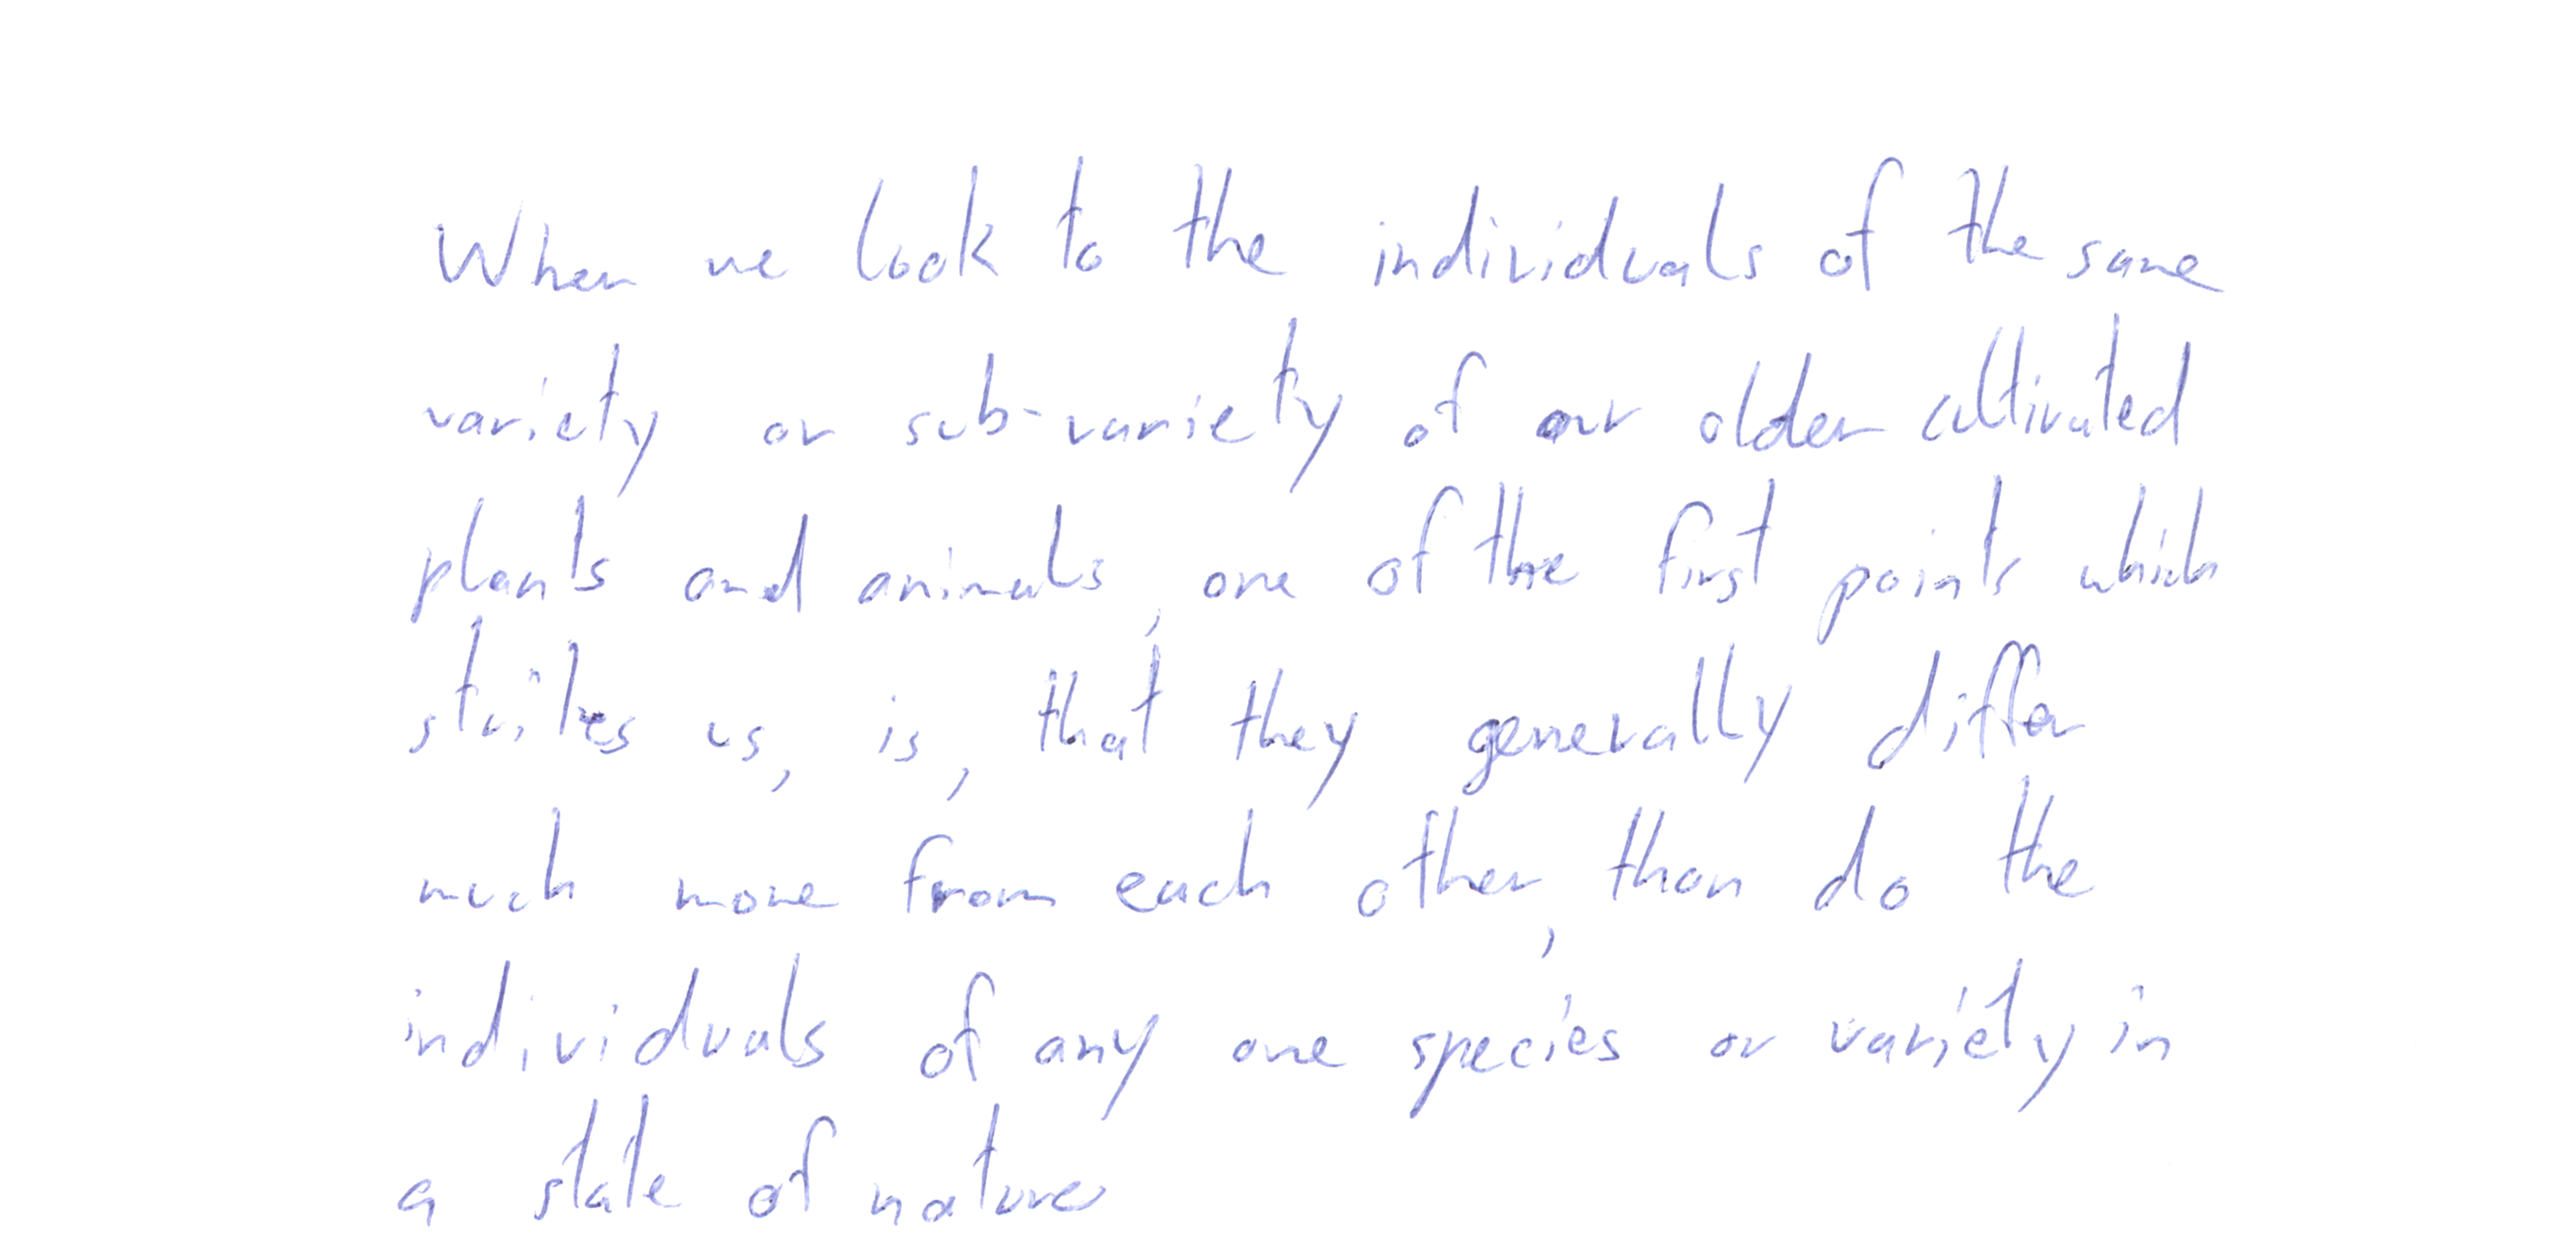 When we look to the individuals of the same
variety or sub-variety of our older cultivated
plants and animals, one of the first points which
strikes us, is, that they generally differ
much more from each other, than do the
individuals of any one species or variety in
a state of nature